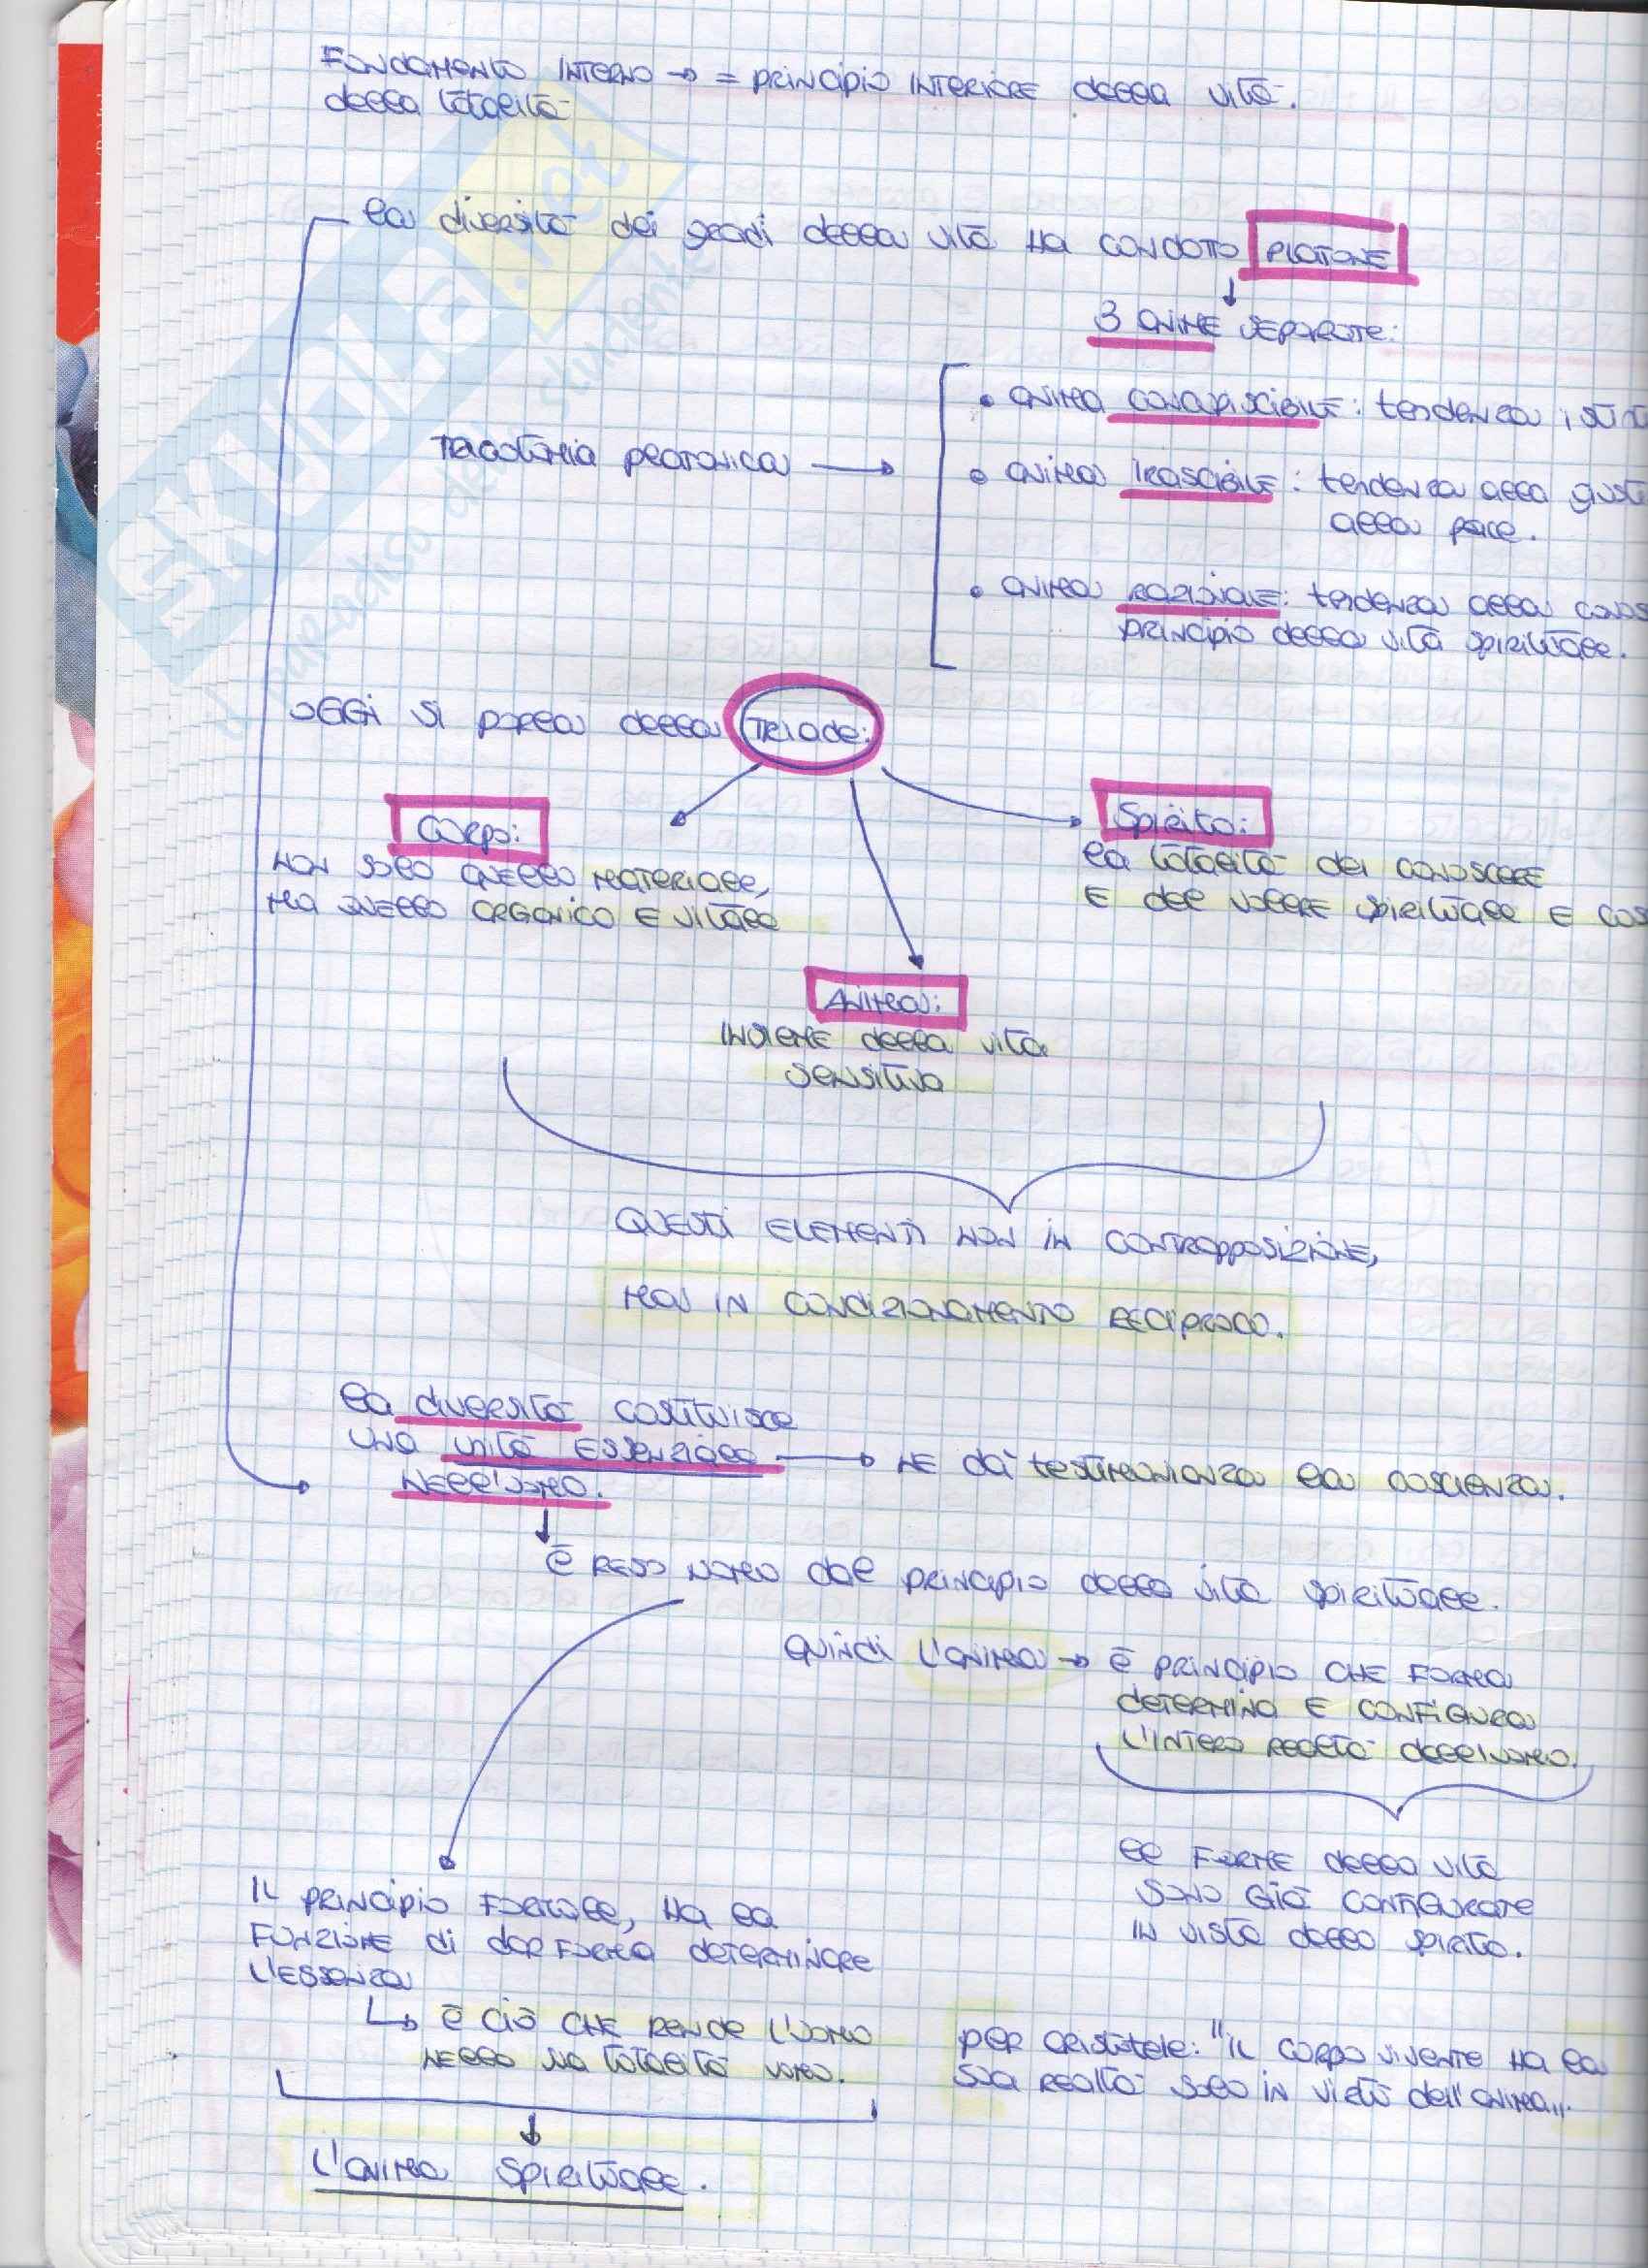 FONDAMENTO INTERNO → = PRINCIPIO INTERIORE della vità.
della totalità
la diversità dei gradi della vità HA CONDOTTO PLATONE
↓
3 ANIME SEPARATE:
• ANIMA CONCUPISCIBILE: tendenza
TRICOTOMIA PLATONICA →
• ANIMA IRASCIBILE: tendenza alla
alla pace.
• ANIMA RAZIONALE: tendenza alla
PRINCIPIO della vità spirituale.
OGGI SI PARLA della TRIADE:
Corpo:
Spirito:
NON SOLO QUELLO MATERIALE,
la totalità del CONOSCERE
MA QUELLO ORGANICO E VITALE
E del VOLERE SPIRITUALE E
ANIMA:
INSIEME della vità
SENSITIVA
QUESTI ELEMENTI NON IN CONTRAPPOSIZIONE,
MA IN CONDIZIONAMENTO RECIPROCO.
la diversità COSTITUISCE
UNA UNITÀ ESSENZIALE → NE dà testimonianza la coscienza.
NELL'UOMO.
↓
è RESO UOMO dal PRINCIPIO della vità spirituale.
QUINDI L'ANIMA → è PRINCIPIO CHE FORMA
DETERMINA E CONFIGURA
L'INTERA REALTÀ dell'UOMO.
le FORME della vità
SONO GIÀ CONFIGURATE
IN VISTA dello spirito.
IL PRINCIPIO FORMALE, HA la
FUNZIONE di dar FORMA DETERMINARE
L'ESSENZA
↳ è CIÒ CHE RENDE L'UOMO
NELLA SUA TOTALITÀ UOMO.
PER ARISTOTELE: "IL CORPO VIVENTE HA la
SUA REALTÀ SOLO IN VIRTÙ dell'ANIMA,,.
↓
L'ANIMA SPIRITUALE.
SKUOLA.net
il paradiso dello studente